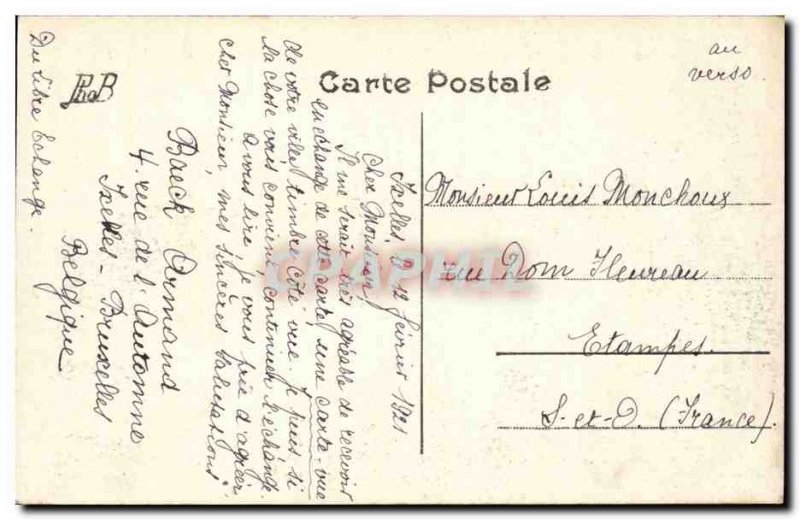 Carte Postale
au
verso.
Ixelles, D. 12 février 1921
Cher Monsieur,
Il me serait très agréable de recevoir
en échange de cette carte, une carte-vue
de votre ville timbre côté vue. Je puis si
la chose vous convient, continuer l'échange.
A vous lire, je vous prie d'agréer
cher Monsieur, mes sincères salutations
Baeck Armand
4. rue de l'Automne
Ixelles - Bruxelles
Belgique
Du Libre Echange.
Monsieur Louis Monchoux
rue Dom Fleureau
Etampes.
S.-et-O. (France).